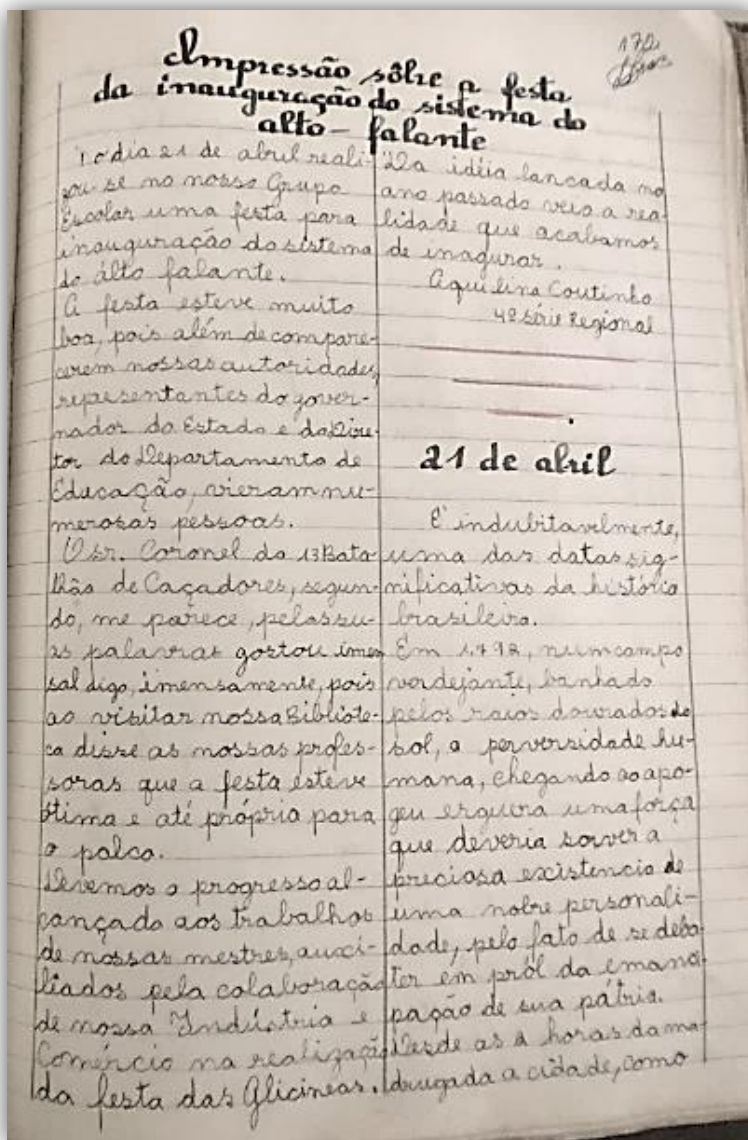 170
Impressão sôbre a festa
da inauguração do sistema do
alto-falante
No dia 21 de abril reali-
zou se no nosso Grupo
Escolar uma festa para
inauguração do sistema
do álto falante.
A festa esteve muito
boa, pois além de compare-
cerem nossas autoridades,
representantes do gover-
nador do Estado e do Dire-
tor do Departamento de
Educação, vieram nu-
merosas pessoas.
O sr. Coronel do 13 Bata-
lhão de Caçadores, segun-
do, me parece, pelas su-
as palavras gostou imen
sal digo, imensamente, pois
ao visitar nossa Bibliote-
ca disse as nossas profes-
soras que a festa esteve
ótima e até própria para
o palco.
Devemos o progresso al-
cançado aos trabalhos
de nossas mestres, auxi-
liados pela colaboração
de nossa Indústria e
Comércio na realização
da festa das Glicineas.
Da idéia lancada no
ano passado veio a rea-
lidade que acabamos
de inagurar.
Aquilina Coutinho
4ª série Regional
21 de abril
É indubitavelmente,
uma das datas sig-
nificativas da história
brasileira.
Em 1.792, num campo
verdejante, banhado
pelos raios dourados do
sol, a perversidade hu-
mana, chegando ao apo-
geu erguera uma força
que deveria sorver a
preciosa existencia de
uma nobre personali-
dade, pelo fato de se deba
ter em pról da emana
pação de sua pátria.
Desde as 2 horas da ma
drugada a cidade, como